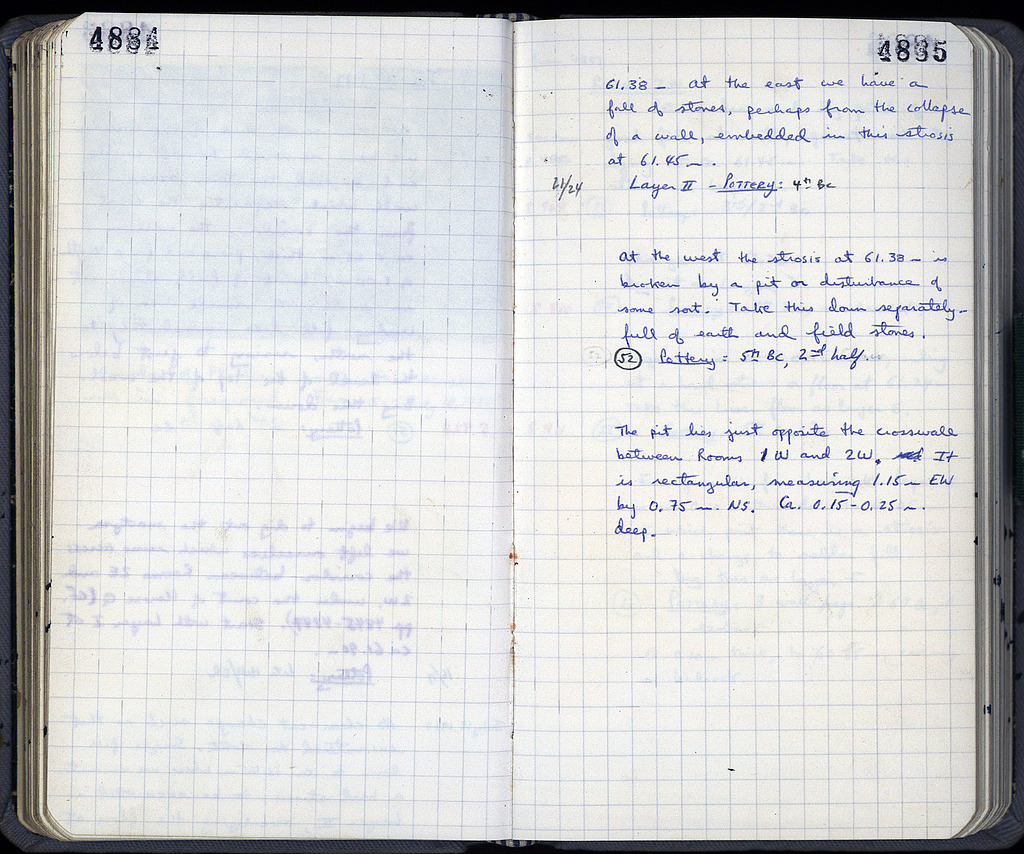 4884
4885
61.38 m at the east we have a
fall of stones, perhaps from the collapse
of a wall, embedded in this strosis
at 61.45 m.
21/24 Layer II - Pottery: 4th BC
At the west the strosis at 61.38 m is
broken by a pit or disturbance of
some sort. Take this down separately -
full of earth and field stones.
52 Pottery: 5th BC, 2nd half.
The pit lies just opposite the crosswall
between Rooms 1W and 2W. It
is rectangular, measuring 1.15 m EW
by 0.75 m. NS. Ca. 0.15-0.25 m.
deep.